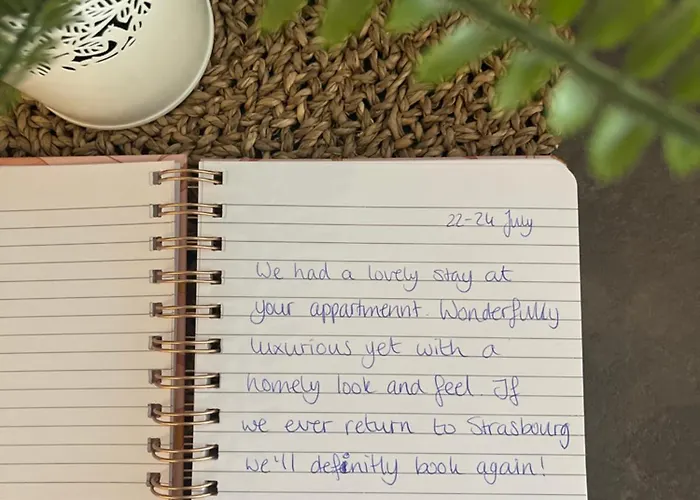 22-24 July
We had a lovely stay at
your appartmennt. Wonderfully
luxurious yet with a
homely look and feel. If
we ever return to Strasbourg
we'll definitly book again!